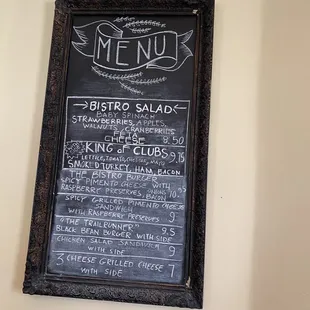 MENU
BISTRO SALAD
BABY SPINACH
STRAWBERRIES, APPLES,
WALNUTS, CRANBERRIES
FETA
CHEESE 8.50
KING of CLUBS 9.75
LETTICE, TOMATO, CHEESE, MAYO
SMOKED TURKEY, HAM, BACON
THE BISTRO BURGER
SPICY PIMENTO CHEESE WITH
RASPBERRY PRESERVES, BACON
SPICY GRILLED PIMENTO CHEESE
SANDWICH
WITH RASPBERRY PRESERVES 9
"THE TRAILRUNNER" 9.5
BLACK BEAN BURGER WITH SIDE
CHICKEN SALAD SANDWICH
WITH SIDE 9
3 CHEESE GRILLED CHEESE
WITH SIDE 7